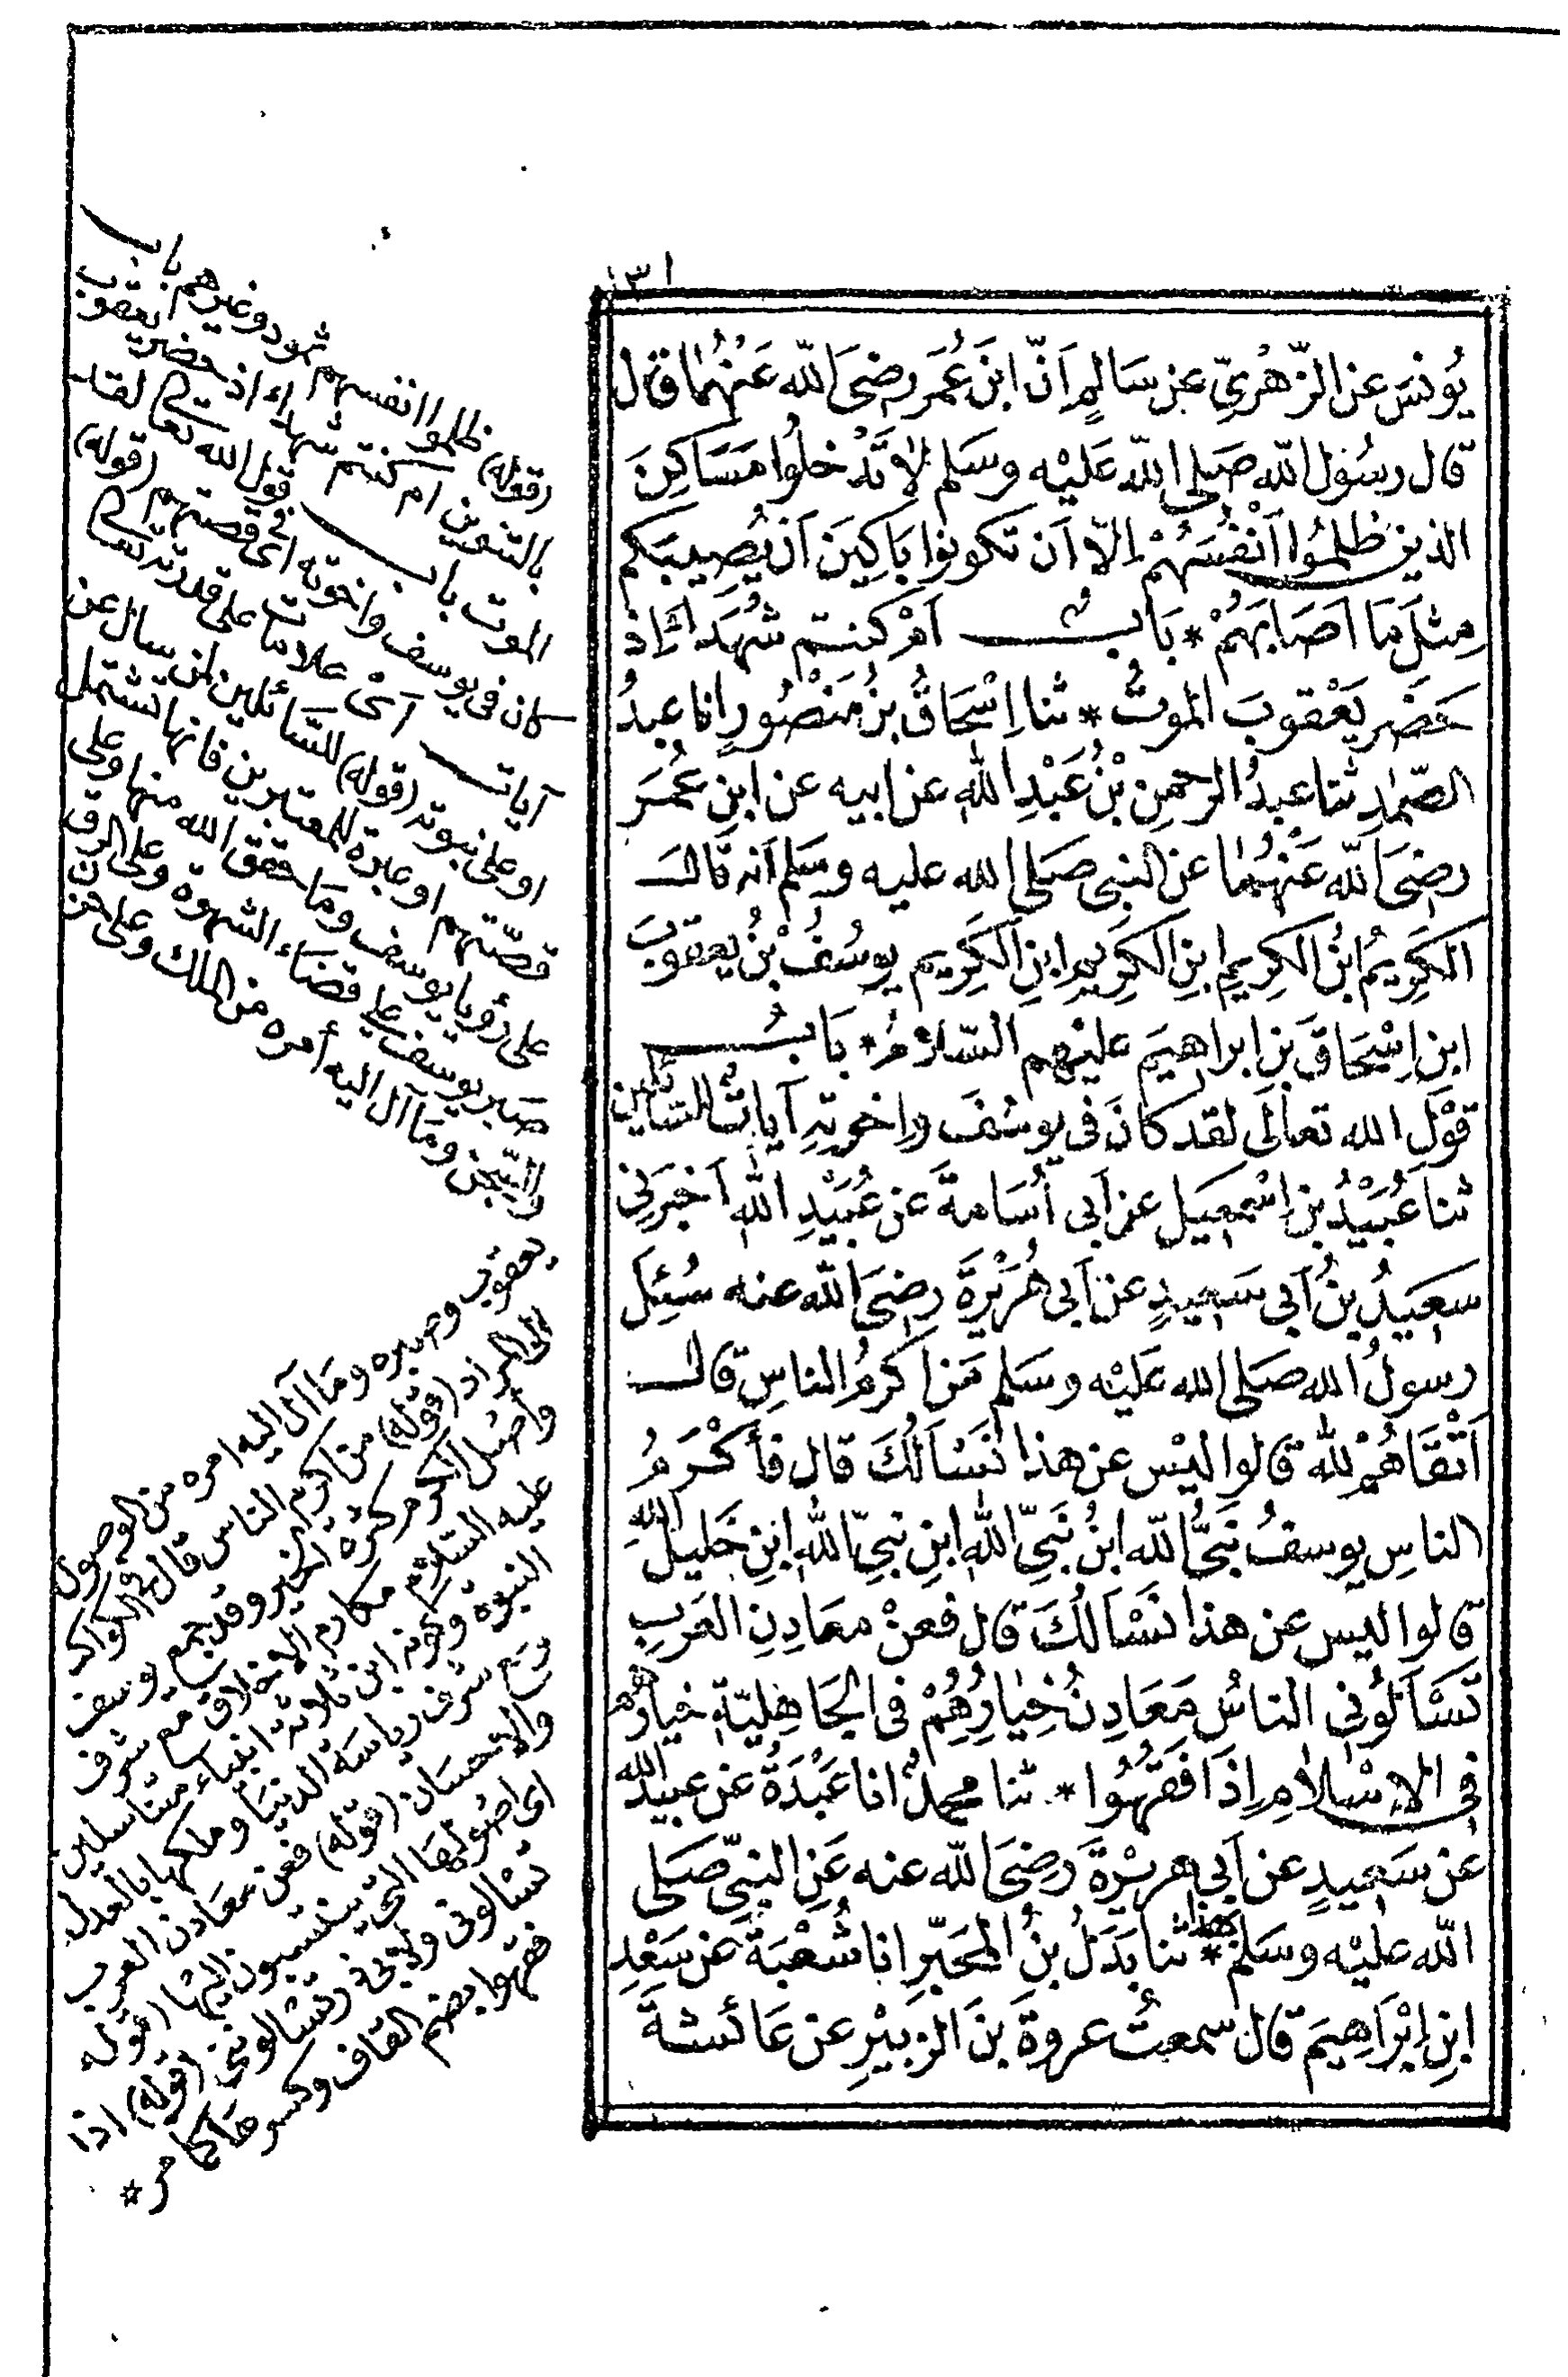 ١٣١
يُونسَ عن الزّهْرِيّ عن سَالِمٍ اَنّ ابنَ عُمَر رضِىَ الله عَنْهُمَا قال
قال رسُول الله صَلى الله عَليْه وسَلم لا تَدْخلُوا مَسَاكِنَ
الذين ظلمُوا اَنْفُسَهُمْ اِلّا اَن تكونوا بَاكِينَ اَن يُصِيبَكم
مِثلَ مَا اَصَابَهُمْ * بَابُ اَمْ كنتم شُهَدَاءَ اِذ
حَضَر يَعْقوبَ الموتُ * ثنا اِسْحَاقُ بنُ مَنْصُورٍ انا عبدُ
الصّمَدِ ثنا عبدُ الرحمنِ بْنُ عَبْدِ الله عن ابيه عن ابنِ عُمَرَ
رضىَ الله عَنْهُمَا عن النبى صَلى الله عليه وسَلم اَنه قالَ
الكَرِيمُ ابْنُ الكرِيمِ ابنِ الكَرِيمِ ابنِ الكَرِيم يوسُفُ بْنُ يعقوبَ
ابنِ اِسْحَاقَ بنِ ابراهيمَ عليْهم السّلامُ * بَابُ
قوْلِ الله تعالَى لقد كانَ فى يوسُفَ واِخوتهِ آياتٌ للسّائلين
ثنا عُبَيْدُ بن اِسْمعِيل عن اَبى اُسَامةَ عن عُبَيْدِ الله اَخبَرَنِى
سعِيدُ بنُ اَبى سَعِيدٍ عن اَبى هُرَيْرَةَ رضِىَ الله عنه سُئِلَ
رسولُ الله صَلى الله عَليْه وسَلم مَن اَكرمُ الناسِ قالَ
اَتْقَاهُمْ لله قالوا ليْس عن هذا نَسْاَلُكَ قال فأكْرَمُ
الناسِ يوسفُ نَبىُّ الله ابنُ نَبىِّ الله ابنِ نبىِّ الله ابنِ خَلِيلِ الله
قالوا ليس عن هذا نَسْاَلُكَ قال فعنْ معَادِنِ العَربِ
تَسْاَلُونِى الناسُ مَعَادِنُ خِيارُهُمْ فى الجَاهِليّةِ خيارُهم
فى الاِسْلامِ اِذَا فَقُهُوا * ثنا محمدٌ انا عَبْدَةُ عن عبيد الله
عن سَعِيدٍ عن اَبى هريْرةَ رضِىَ الله عنه عَنِ النبىّ صَلى
الله عليْه وسَلم بهذا * ثنا بَدَلُ بنُ المحَبَّرِ انا شُعْبَةُ عن سَعْدِ
ابنِ اِبْرَاهِيمَ قال سمعتُ عروةَ بنَ الزبيْرِ عن عَائشةَ
(قوله) ظلموا انفسهم ثمود وغيرهم باب
بالتنوين ام كنتم شهداء اذ حضر يعقوب
الموت باب قول الله تعالى لقد
كان فى يوسف واخوته اى فى قصتهم (قوله)
آيات اى علامات على قدرته تعالى
او على نبوته (قوله) للسّائلين لمن سال عن
قصّتهم او عبرة للمعتبرين فانها تشتمل
على رؤيا يوسف ومَا حقق الله منها وعلى
صَبر يوسف على قضاء الشهوة وعلى الرق
والسّجن ومَا آل اليه أمره من الملك وعلى حزن
يعقوب وصبره ومَا آل اليه امره من الوصول
الى المراد (قوله) من اكرم الناس قال فى الكواكب
وأصْل الكرم كثرة الخير وقد جمع يوسف
عليه السّلام مكارم الاخلاق مع شرف
النبوة وكونه ابن ثلاثة انبياء متناسلين
مع شرف رياسة الدنيا وملكها بالعدل
والاحسَان (قوله) فعن معَادن العرب
اى اصُولهَا التى ينتسبون اليْها (قوله
تسْالونى ولابى ذر تسْالوننى (قوله) اذا
فقهوا بضم القاف وكسرهَا كما مر *